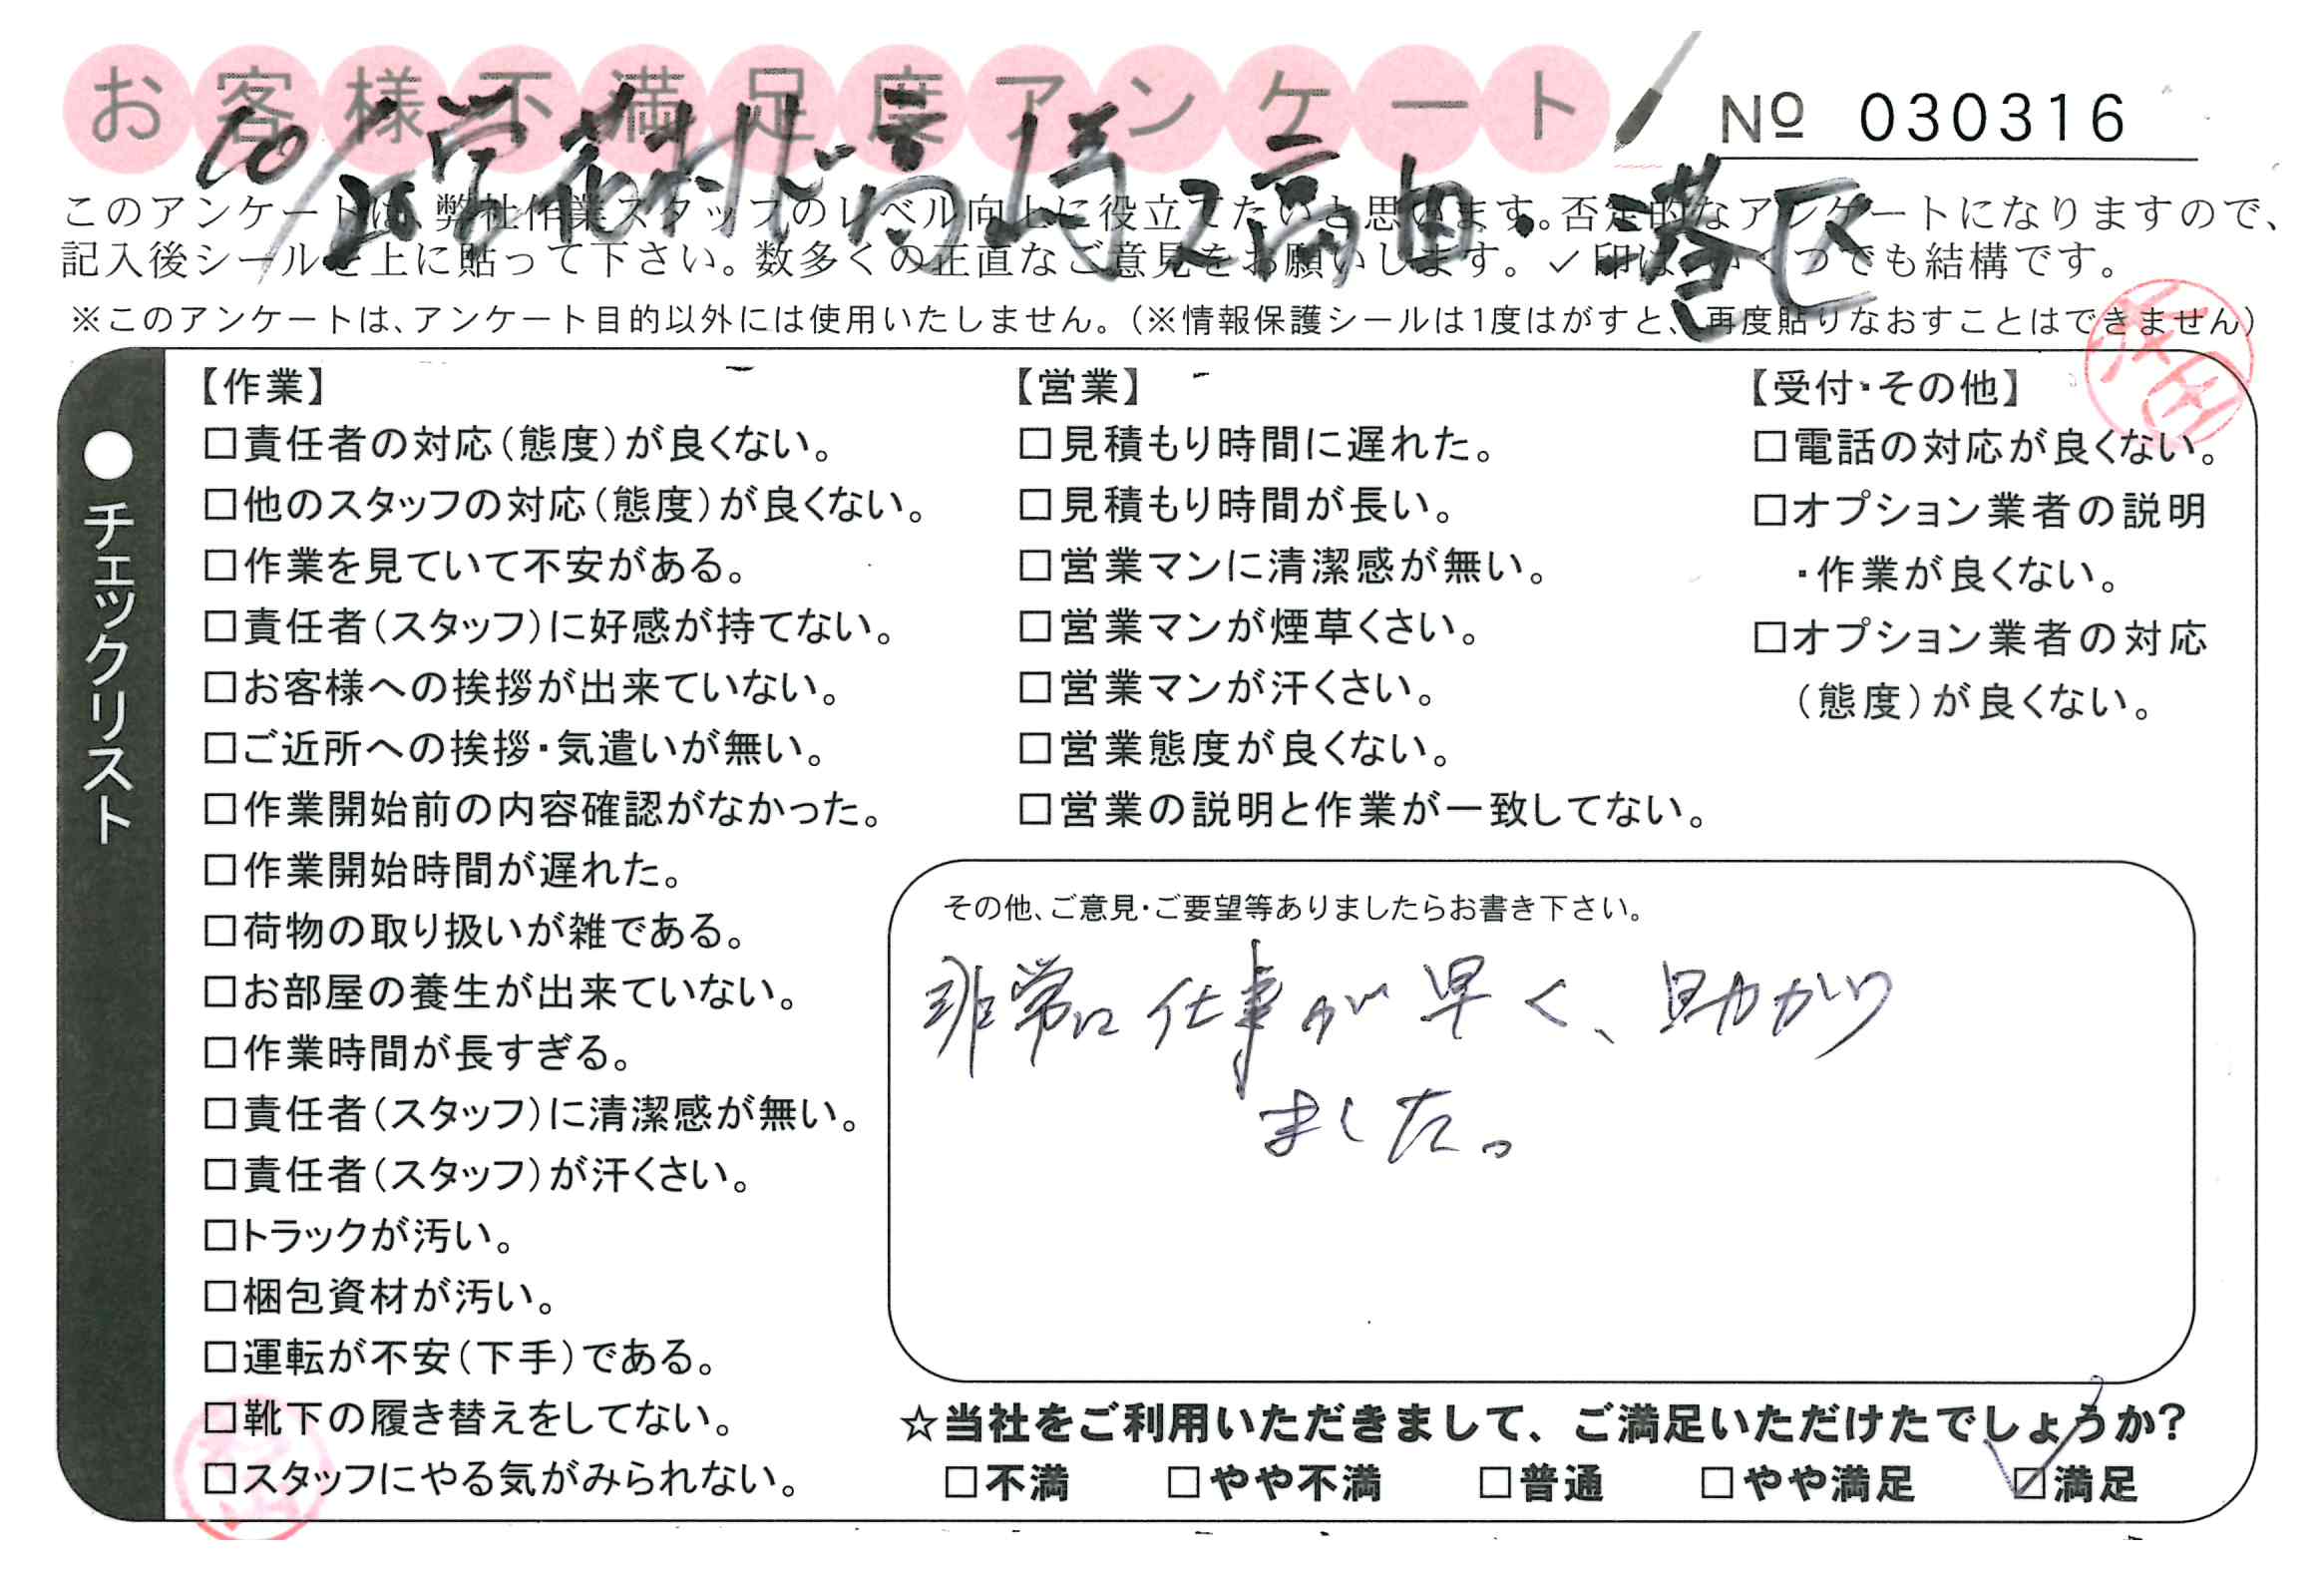 お客様不満足度アンケート
№ 030316
このアンケートは、弊社作業スタッフのレベル向上に役立てたいと思います。否定的なアンケートになりますので、
記入後シールを上に貼って下さい。数多くの正直なご意見をお願いします。✓印は、いくつでも結構です。
※このアンケートは、アンケート目的以外には使用いたしません。(※情報保護シールは1度はがすと、再度貼りなおすことはできません)
●チェックリスト
【作業】
□責任者の対応(態度)が良くない。
□他のスタッフの対応(態度)が良くない。
□作業を見ていて不安がある。
□責任者(スタッフ)に好感が持てない。
□お客様への挨拶が出来ていない。
□ご近所への挨拶・気遣いが無い。
□作業開始前の内容確認がなかった。
□作業開始時間が遅れた。
□荷物の取り扱いが雑である。
□お部屋の養生が出来ていない。
□作業時間が長すぎる。
□責任者(スタッフ)に清潔感が無い。
□責任者(スタッフ)が汗くさい。
□トラックが汚い。
□梱包資材が汚い。
□運転が不安(下手)である。
□靴下の履き替えをしてない。
□スタッフにやる気がみられない。
【営業】
□見積もり時間に遅れた。
□見積もり時間が長い。
□営業マンに清潔感が無い。
□営業マンが煙草くさい。
□営業マンが汗くさい。
□営業態度が良くない。
□営業の説明と作業が一致してない。
【受付・その他】
□電話の対応が良くない。
□オプション業者の説明
・作業が良くない。
□オプション業者の対応
(態度)が良くない。
その他、ご意見・ご要望等ありましたらお書き下さい。
非常に仕事が早く、助かり
ました。
☆当社をご利用いただきまして、ご満足いただけたでしょうか?
□不満 □やや不満 □普通 □やや満足 ☑満足